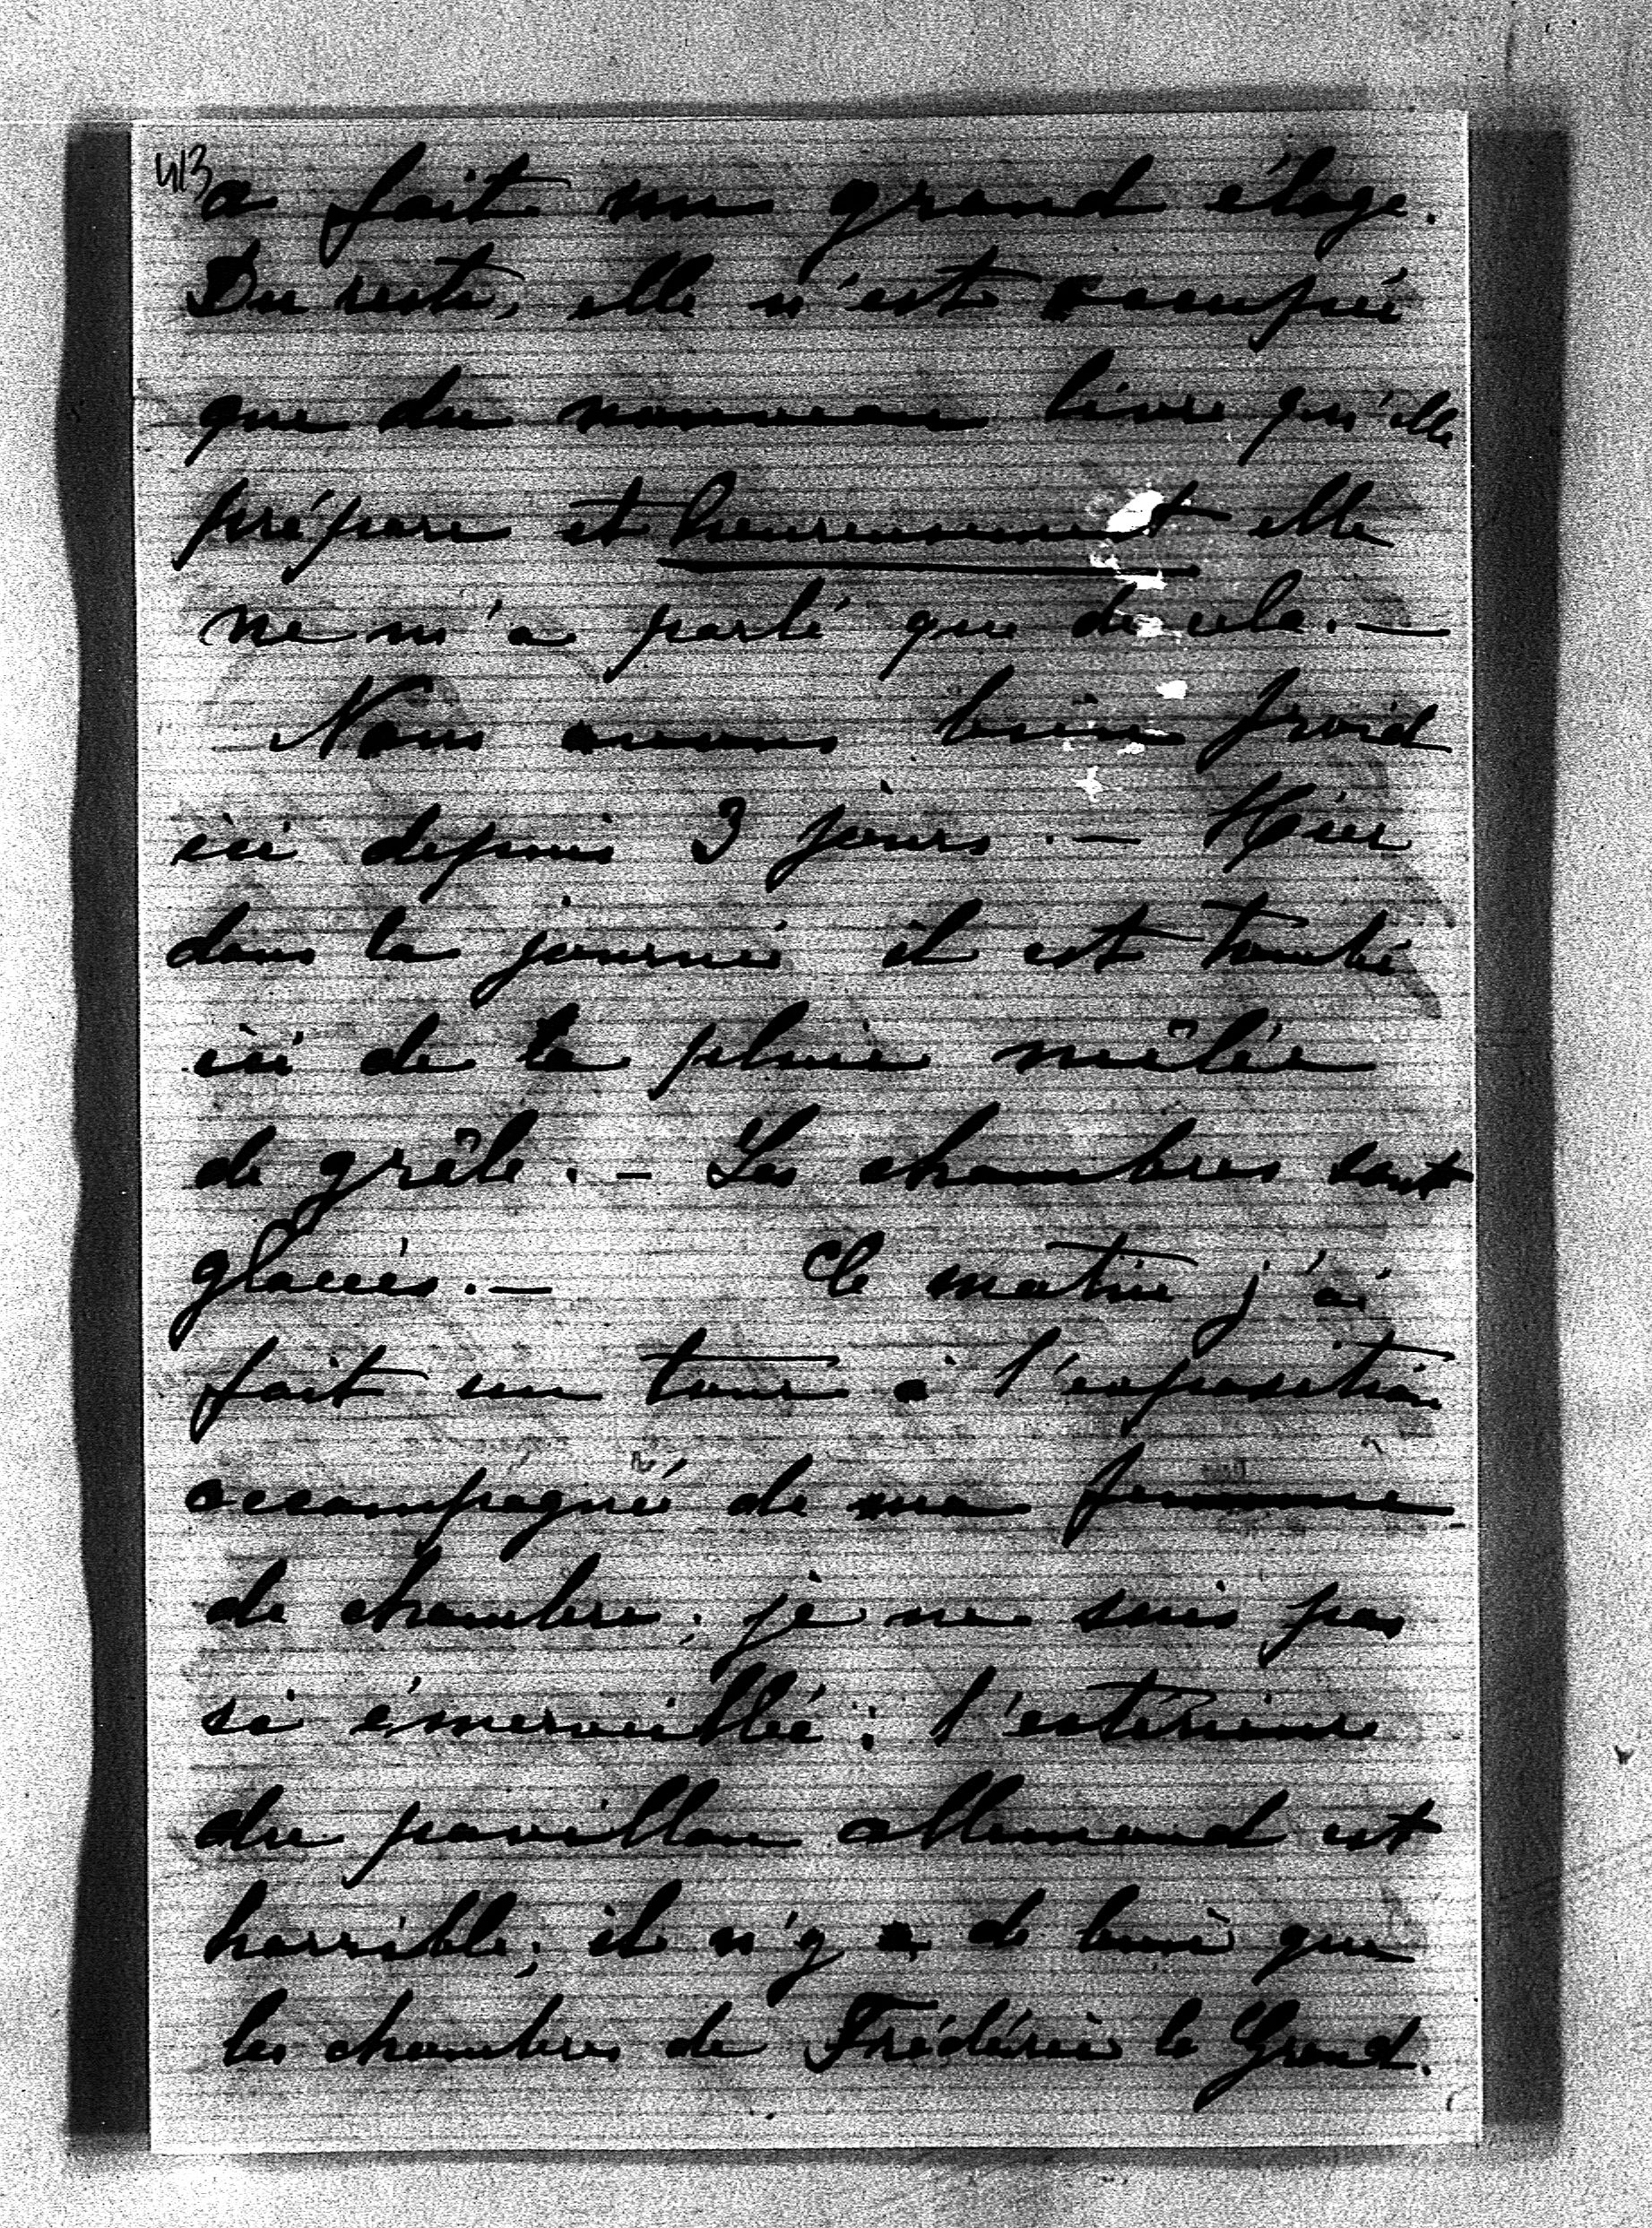 413
a fait un grand éloge.
Du reste, elle n'est occupée
que du nouveau livre qu'elle
prépare et heureusement elle
ne m'a parlé que de cela. —
Nous avons bien froid
ici depuis 3 jours. — Hier
dans la journée il est tombé
ici de la pluie mêlée
de grêle. — Les chambres sont
glacées. — Ce matin j'ai
fait un tour à l'exposition
accompagnée de ma femme
de chambre; je ne suis pas
si émerveillée: l'extérieur
du pavillon allemand est
horrible; il n'y a de bien que
les chambres de Frédéric le Grand.